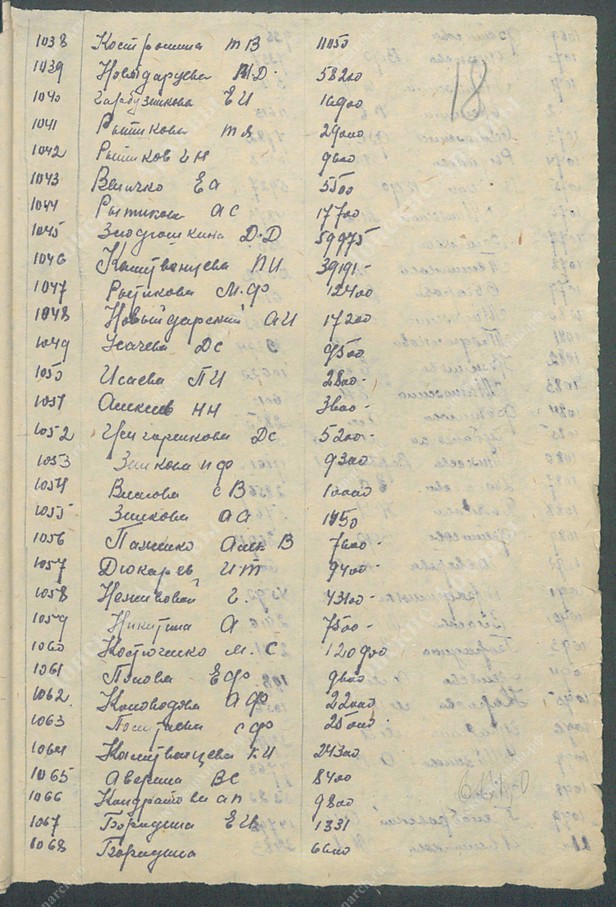 1038 Костромина Т В 11050
1039 Новодаруева М.Д. 58200
1040 Гарбузникова Е И 16900
1041 Рытикова Т Я 29000
18
1042 Рытиков И Н 9600
1043 Величко Е а 5500
1044 Рытикова А С 17700
1045 Д.Д 59975
1046 Калитванцева П И 39191-
1047 Рытикова М.Ф 12400
1048 Новыйдарский А И 17200
1049 Усачева Д С 9500
1050 Исаева П И 2800-
1051 Алексеев Н Н 3600-
1052 Д С 5200-
1053 Зинкова П Ф 9300
1054 Власова С В 10000
1055 Зинкова А А 1450
1056 Алек В 7600-
1057 Дюкарев И Т 9400-
1058 Г. 43100-
1059 Никитина А 7500-
1060 Костюченко М. С 120900
1061 Попова Е Ф 9600
1062 Коловодова А Ф 22000
1063 С Ф 25000-
1064 Калитванцева Е И 24300
1065 Аверина В С 8400
1066 А П 9800
1067 Бородина Е И 1331
1068 Бородина 6600